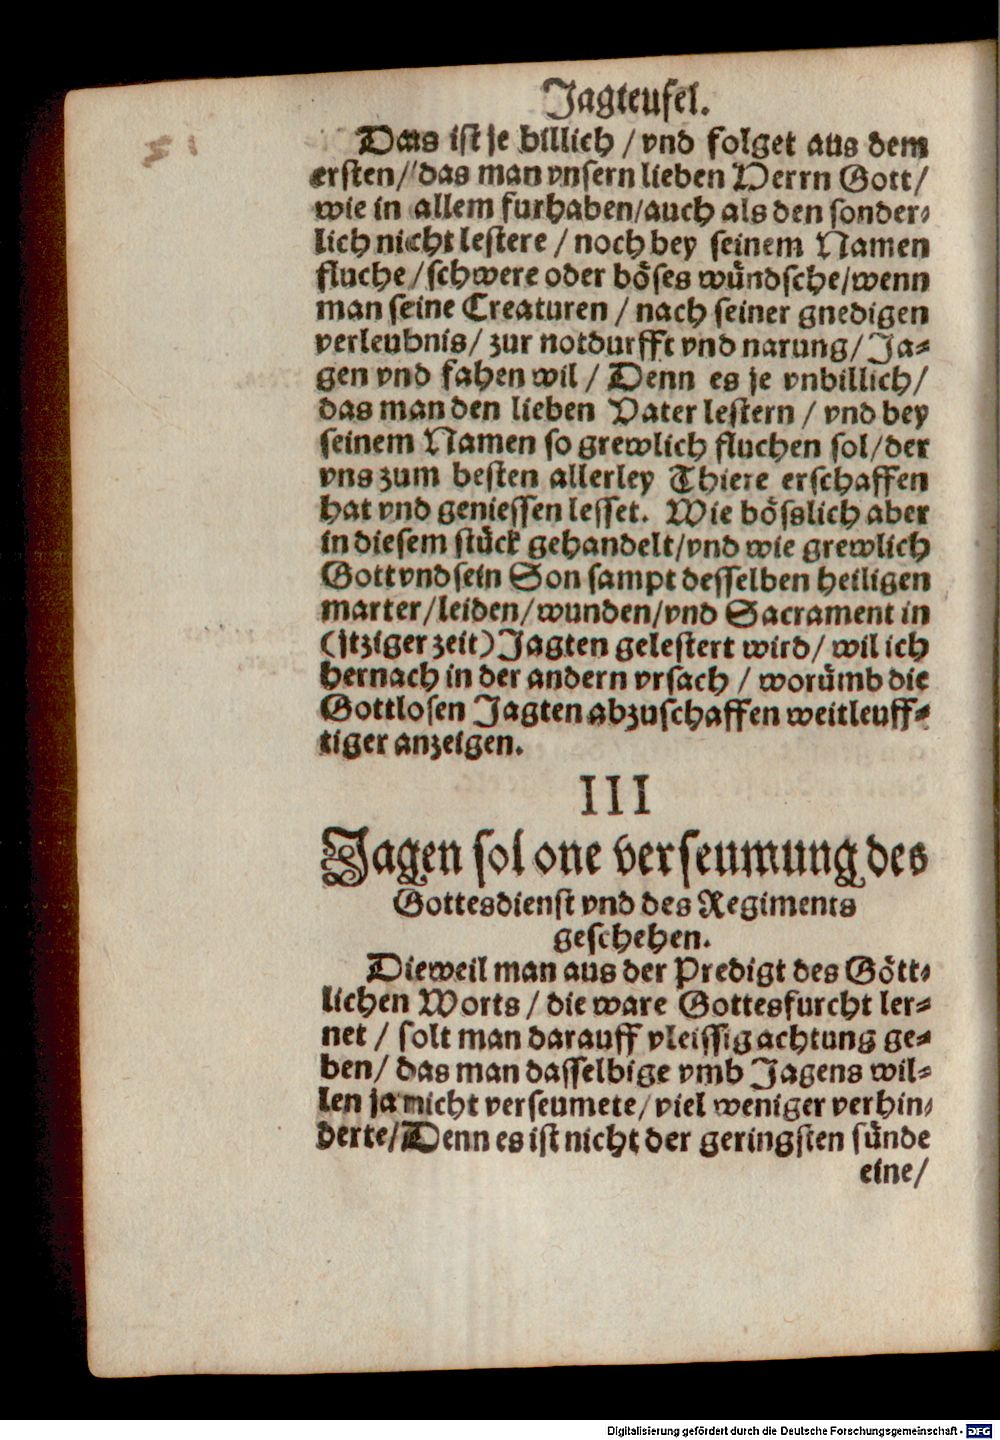 Jagteufel.
Das ist je billich / vnd folget aus dem
ersten / das man vnsern lieben Herrn Gott /
wie in allem furhaben / auch als den sonder-
lich nicht lestere / noch bey seinem Namen
fluche / schwere oder böses wündsche / wenn
man seine Creaturen / nach seiner gnedigen
verleubnis / zur notdurfft vnd narung / Ja-
gen vnd fahen wil / Denn es je vnbillich /
das man den lieben Vater lestern / vnd bey
seinem Namen so grewlich fluchen sol / der
vns zum besten allerley Thiere erschaffen
hat vnd geniessen lesset. Wie böslich aber
in diesem stück gehandelt / vnd wie grewlich
Gott vnd sein Son sampt desselben heiligen
marter / leiden / wunden / vnd Sacrament in
(jtziger zeit) Jagten gelestert wird / wil ich
hernach in der andern vrsach / worümb die
Gottlosen Jagten abzuschaffen weitleuff-
tiger anzeigen.
III
Jagen sol one verseumung des
Gottesdienst vnd des Regiments
geschehen.
Dieweil man aus der Predigt des Gött-
lichen Worts / die ware Gottesfurcht ler-
net / solt man darauff vleissig achtung ge-
ben / das man dasselbige vmb Jagens wil-
len ja nicht verseumete / viel weniger verhin-
derte / Denn es ist nicht der geringsten sünde
eine /
Digitalisierung gefördert durch die Deutsche Forschungsgemeinschaft - DFG